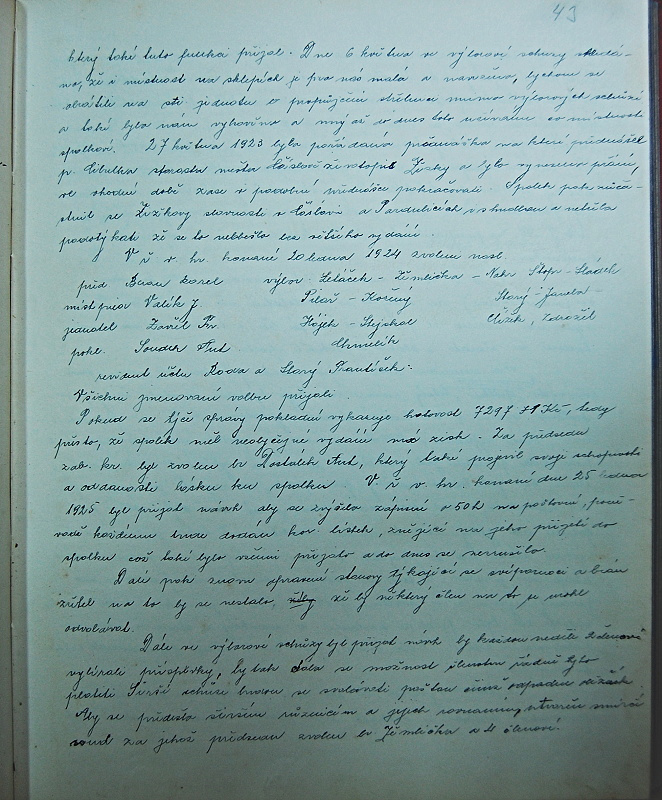 43
který také tuto funkci přijal. Dne 6 května ve výborové schůzy shledá-
no, že i místnost na sklepích je pro nás malá a navrženo, bychom se
obrátili na stř. jednotu o propůjčení střelnice mimo výborových schůzí
a také bylo nám vyhověno a my až do dnes toto užíváme co místnosti
spolkové. 27 května 1923 byla pořádána přednáška na které přednášel
p. Cibulka starosta města Čáslavě životopis Žižky a bylo vyneseno přání,
ve vhodné době zase v podobné přednášce pokračovati. Spolek pak súča-
stnil se Žižkovy slavnosti v Čáslavi a Pardubicích s hudbou a netřeba
podotýkati že se to neobešlo bez většího vydání.
V ř. v. hr. konané 20 ledna 1924 zvoleni násl.
před Baan Karel výbor Letáček - Žemlička - Nekr Štopr - Sládek
místpřed Valík J. Pilař - Kořený Starý - Janela -
jednatel Zavřel Fr. Hájek - Stejskal Čížek, Zdražil
pokl. Soudek Ant. Chmelík
revident účtu Boda a Starý František:
Všichni jmenovaní volbu přijali.
Pokud se týče zprávy pokladní vykazuje hotovost 7297 Kč, tedy
přesto, že spolek měl neobyčejné vydání má zisk. Za předsedu
zab. kr. byl zvolen br Dostálek Ant., který také projevil svoji schopnost
a oddanosti lásku ku spolku. V ř. v. hr. konané dne 25 ledna
1925 byl přijat návrh aby se zvýšilo zápisné o 50 h na poštovní, poně-
vadž každému bude dodán kor. lístek, znějící na jeho přijetí do
spolku což také bylo všemi přijato a do dnes se nezrušilo.
Dále pak znovu opraveny stanovy týkající se svépomoci a brán
zřetel na to by se nestalo, že by některý člen na to se mohl
odvolávat.
Dále ve výborové schůzy byl přijat návrh by každou neděli 2 členové
vybírali příspěvky, by tak dála se možnost členům řádně tyto
platiti Širší schůze budou se svolávati poštou čímž odpadnou
Aby se předešlo širším různicím a jejich rovnaním, utvořen smírčí
soud za jehož předsedu zvolen br Žemlička a 4 členové.